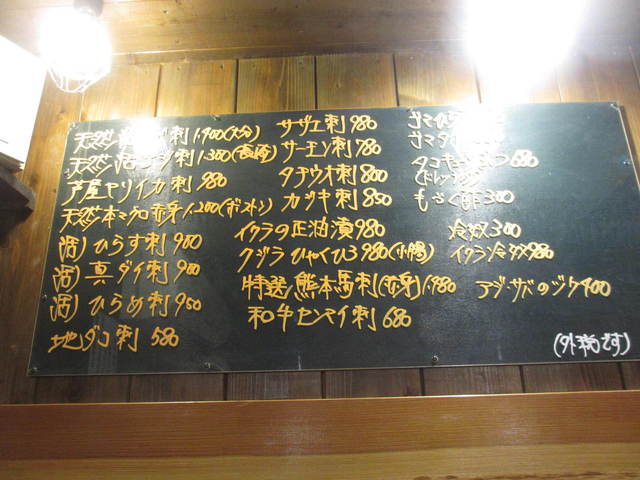 天然 刺 1.900(大分)
天然活 刺 1.300(長崎)
芦屋ヤリイカ刺 980
天然本マグロ赤身 1.200(ボストン)
活)ひらす刺 900
活)真ダイ刺 900
活)ひらめ刺 950
地ダコ刺 580
サザエ刺 980
サーモン刺 780
タチウオ刺 800
カジキ刺 850
イクラの正油漬 980
クジラひゃくひろ 980(小腸)
特選熊本馬刺(赤身)1.480
和牛センマイ刺 680
ゴマ
ゴマ
タコキ 680
(ドレッシング)
もずく酢 300
冷奴 300
イクラ冷奴 980
アジ・サバのジク 400
(外税です)